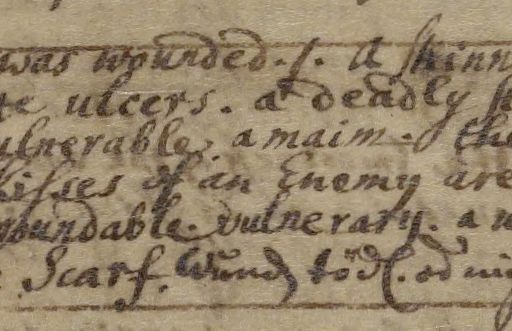 was wounded. s. A skinn
te ulcers. a deadly
ulnerable. a maim. the
kisses of an Enemy are
woundable. vulnerary. a w
Scarf. Wund tödl. od